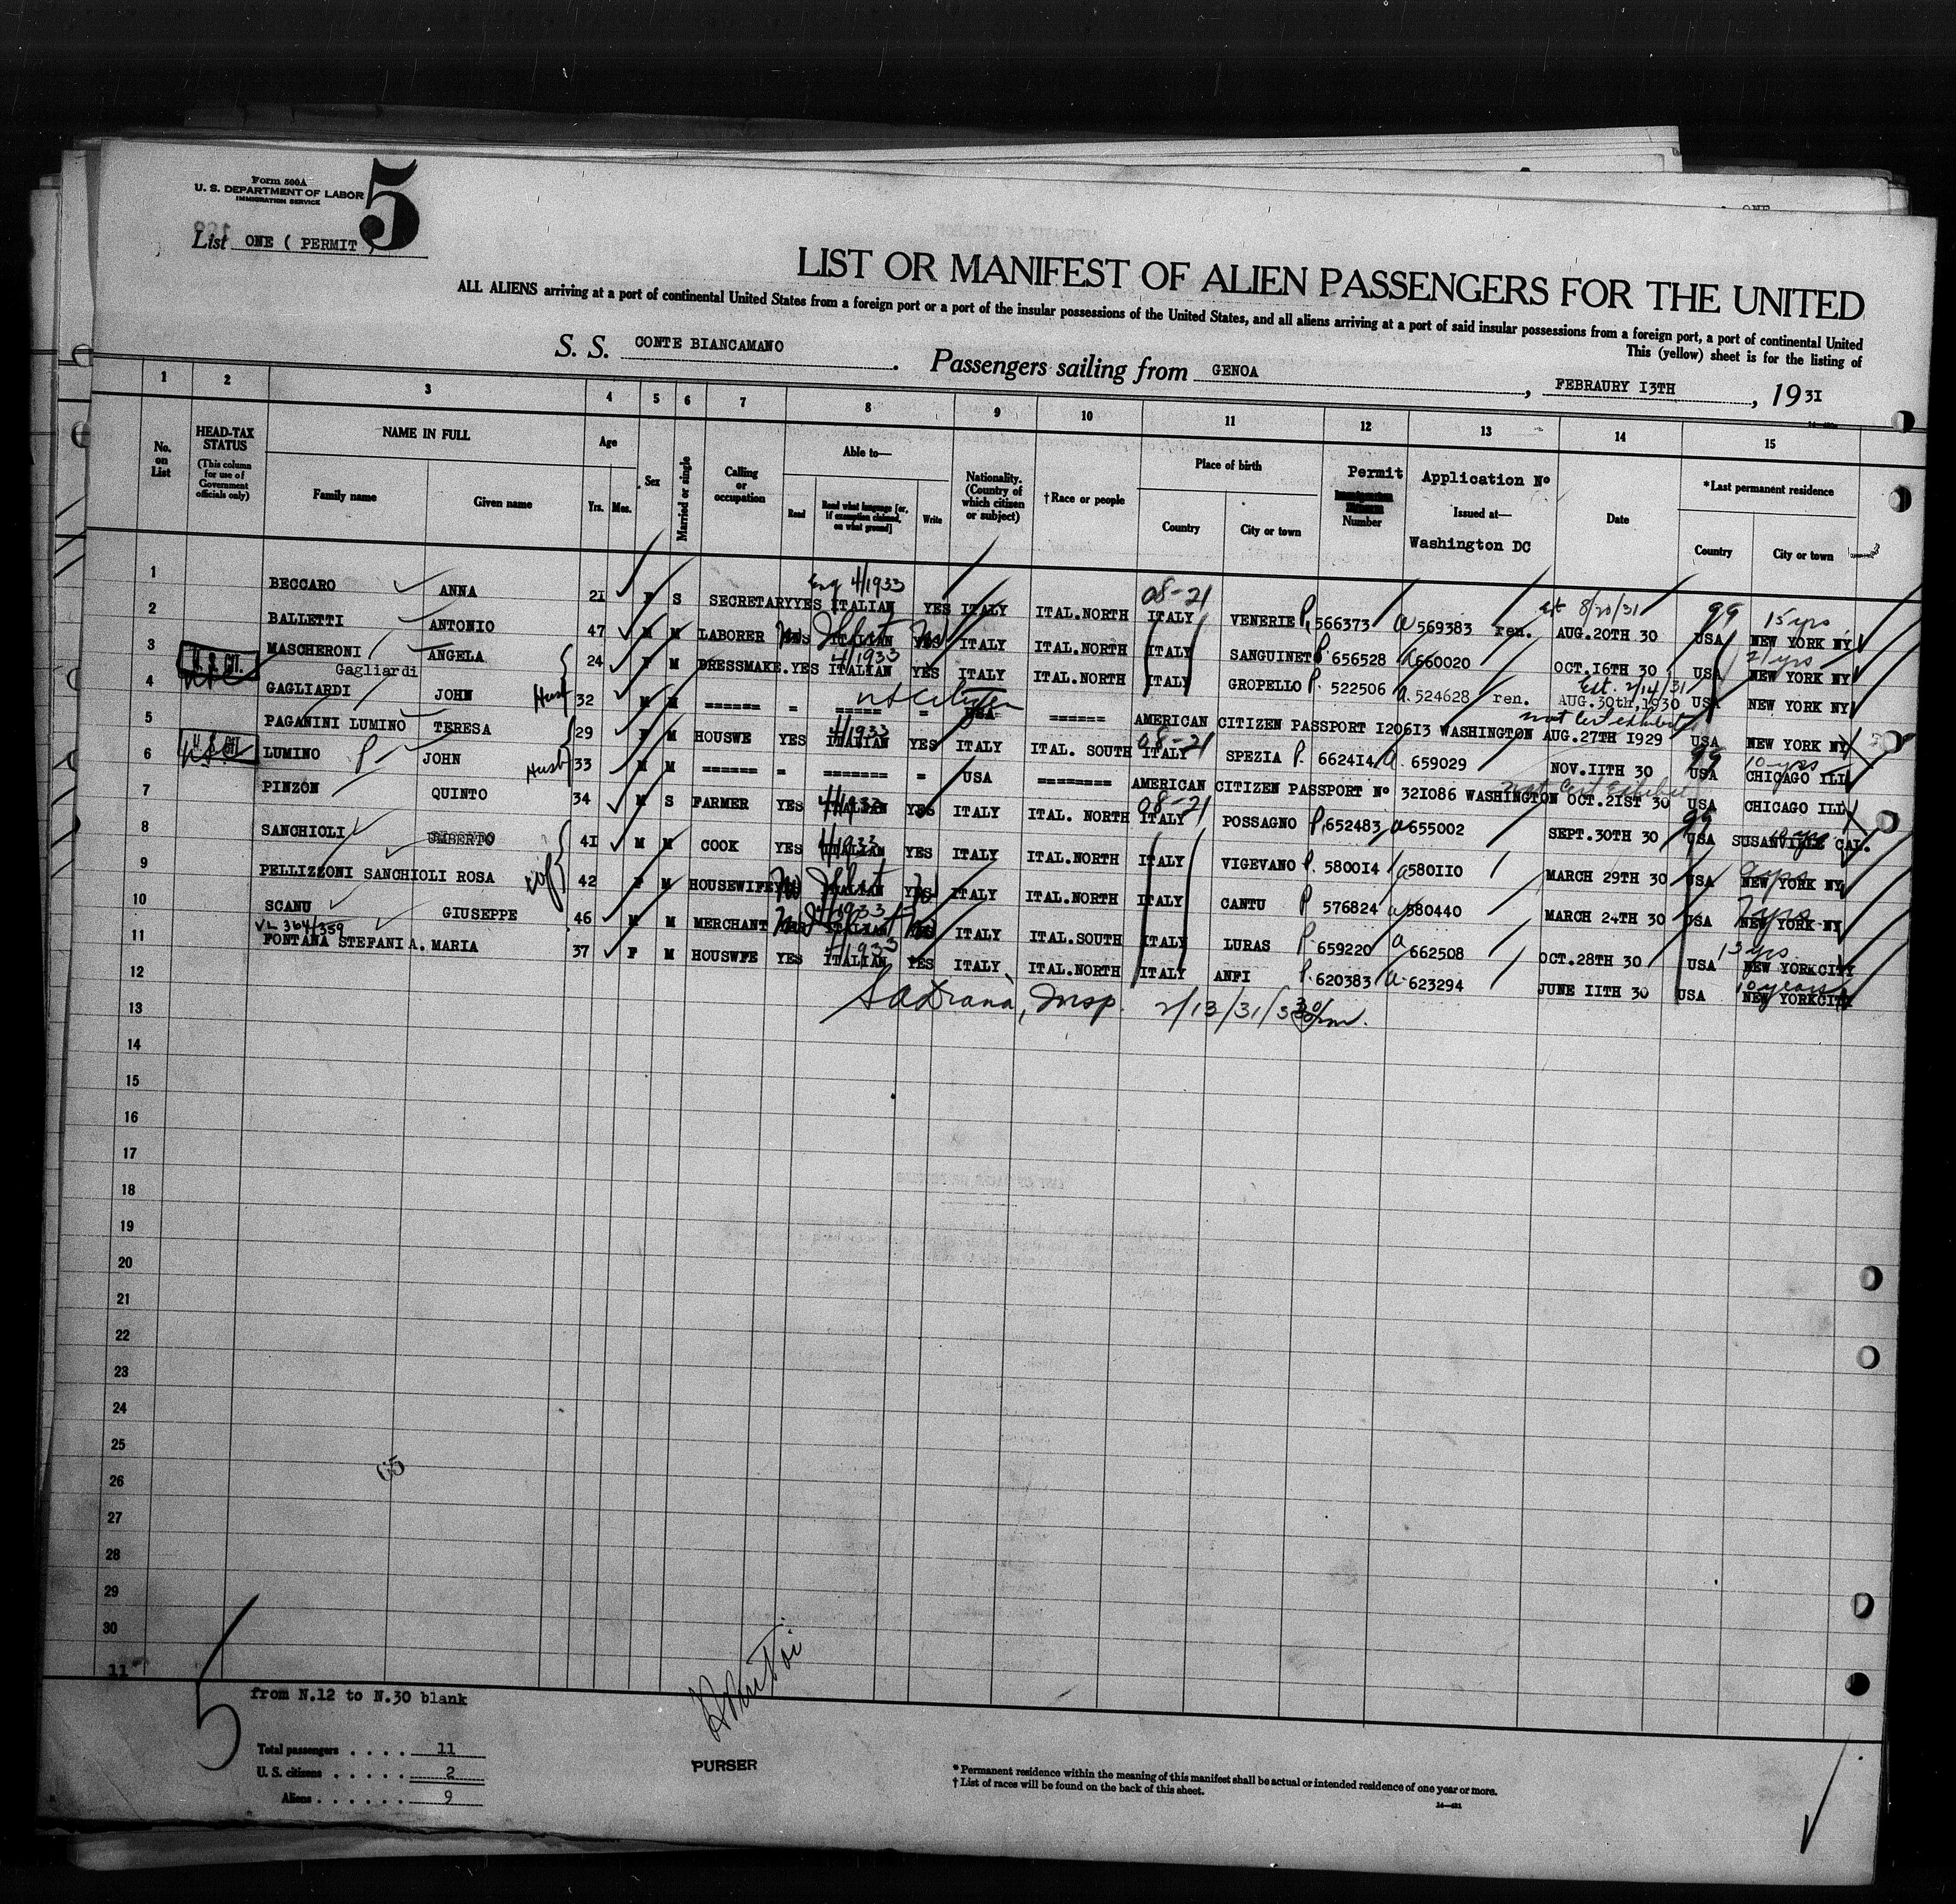 Form 500A
U. S. DEPARTMENT OF LABOR
IMMIGRATION SERVICE
5
List ONE ( PERMIT )
LIST OR MANIFEST OF ALIEN PASSENGERS FOR THE UNITED
ALL ALIENS arriving at a port of continental United States from a foreign port or a port of the insular possessions of the United States, and all aliens arriving at a port of said insular possessions from a foreign port, a port of continental United
This (yellow) sheet is for the listing of
S. S. CONTE BIANCAMANO. Passengers sailing from GENOA, FEBRAURY 13TH, 1931
1 2 3 4 5 6 7 8 9 10 11 12 13 14 15
No. on List
HEAD-TAX STATUS (This column for use of Government officials only)
NAME IN FULL Family name Given name
Age Yrs. Mos.
Sex
Married or single
Calling or occupation
Able to— Read Read what language [or, if exemption claimed, on what ground] Write
Nationality. (Country of which citizen or subject)
†Race or people
Place of birth Country City or town
Permit Number
Application Nº Issued at— Washington DC
Date
*Last permanent residence Country City or town
Eng 4/1933 08-21 8/20/31 99 15 yrs
1 BECCARO ANNA 21 F S SECRETARY YES ITALIAN YES ITALY ITAL.NORTH ITALY VENERIE P. 566373 a 569383 ren. AUG.20TH 30 USA NEW YORK NY
2 BALLETTI ANTONIO 47 M M LABORER YES ITALIAN YES ITALY ITAL.NORTH ITALY SANGUINET P. 656528 a 660020 OCT.16TH 30 USA NEW YORK NY
4/1933 21 yrs
3 U. S. CIT. MASCHERONI Gagliardi ANGELA 24 F M DRESSMAKE. YES ITALIAN YES ITALY ITAL.NORTH ITALY GROPELLO P. 522506 a. 524628 ren. Ext. 2/14/31 AUG.30th,1930 USA NEW YORK NY
4 GAGLIARDI JOHN Husf 32 M M ====== = ===== = USA ====== AMERICAN CITIZEN PASSPORT 120613 WASHINGTON AUG.27TH 1929 USA NEW YORK NY
4/1933 08-21 99 10 yrs
5 U. S. CIT. PAGANINI LUMINO TERESA 29 F M HOUSWE YES ITALIAN YES ITALY ITAL. SOUTH ITALY SPEZIA P. 662414 a. 659029 NOV.11TH 30 USA CHICAGO ILL
6 LUMINO JOHN Husf 33 M M ====== = ======= = USA ======== AMERICAN CITIZEN PASSPORT Nº 321086 WASHINGTON OCT.21ST 30 USA CHICAGO ILL
08-21 99
7 PINZON QUINTO 34 M S FARMER YES ITALIAN YES ITALY ITAL. NORTH ITALY POSSAGNO P. 652483 a 655002 SEPT.30TH 30 USA SUSANVILLE CAL.
4/1933
8 SANCHIOLI UMBERTO 41 M M COOK YES ITALIAN YES ITALY ITAL.NORTH ITALY VIGEVANO P. 580014 a 580110 MARCH 29TH 30 USA NEW YORK NY
9 PELLIZZONI SANCHIOLI ROSA 42 F M HOUSEWIFE ITALIAN YES ITALY ITAL.NORTH ITALY CANTU P 576824 a 580440 MARCH 24TH 30 USA NEW YORK NY
10 SCANU GIUSEPPE 46 M M MERCHANT YES ITALIAN YES ITALY ITAL.SOUTH ITALY LURAS P. 659220 a 662508 OCT.28TH 30 USA NEW YORKCITY
VL 364/359 4/1933 10 years
11 FONTANA STEFANI A. MARIA 37 F M HOUSWFE YES ITALIAN YES ITALY ITAL.NORTH ITALY ANFI P. 620383 a. 623294 JUNE 11TH 30 USA NEW YORKCITY
12
Insp. 2/13/31
13
14
15
16
17
18
19
20
21
22
23
24
25
26
27
28
29
30
11
65
5
from N.12 to N.30 blank
Total passengers . . . . 11
U. S. citizens . . . . . 2
Aliens . . . . . . 9
PURSER
* Permanent residence within the meaning of this manifest shall be actual or intended residence of one year or more.
† List of races will be found on the back of this sheet.